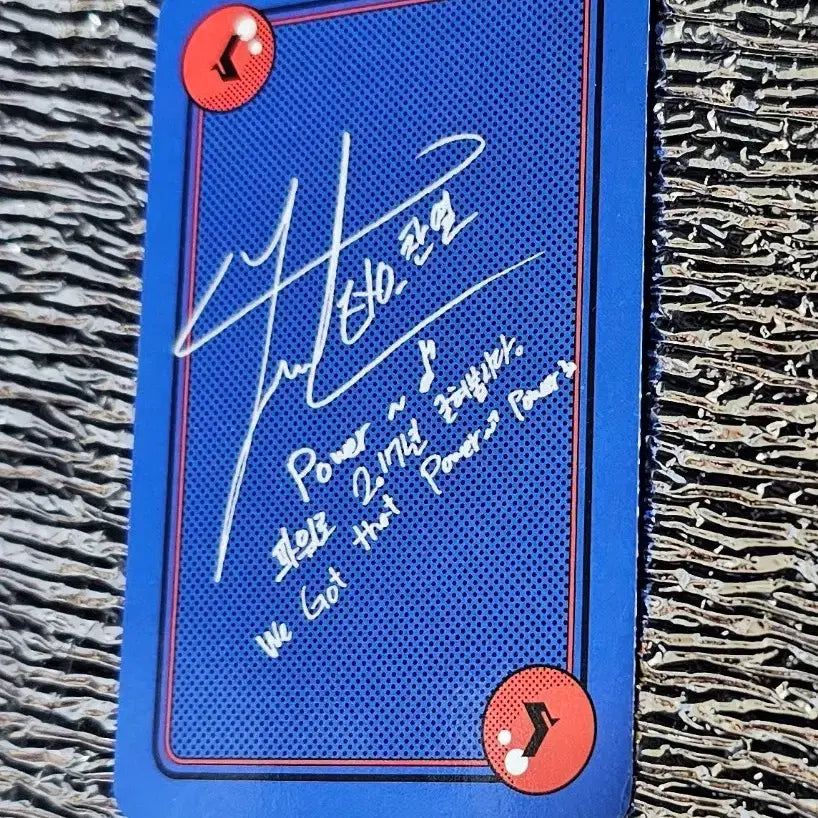 EXO_찬열
Power ~ ♪
파워로 2017년 초허불나다.
We Got that Power Power